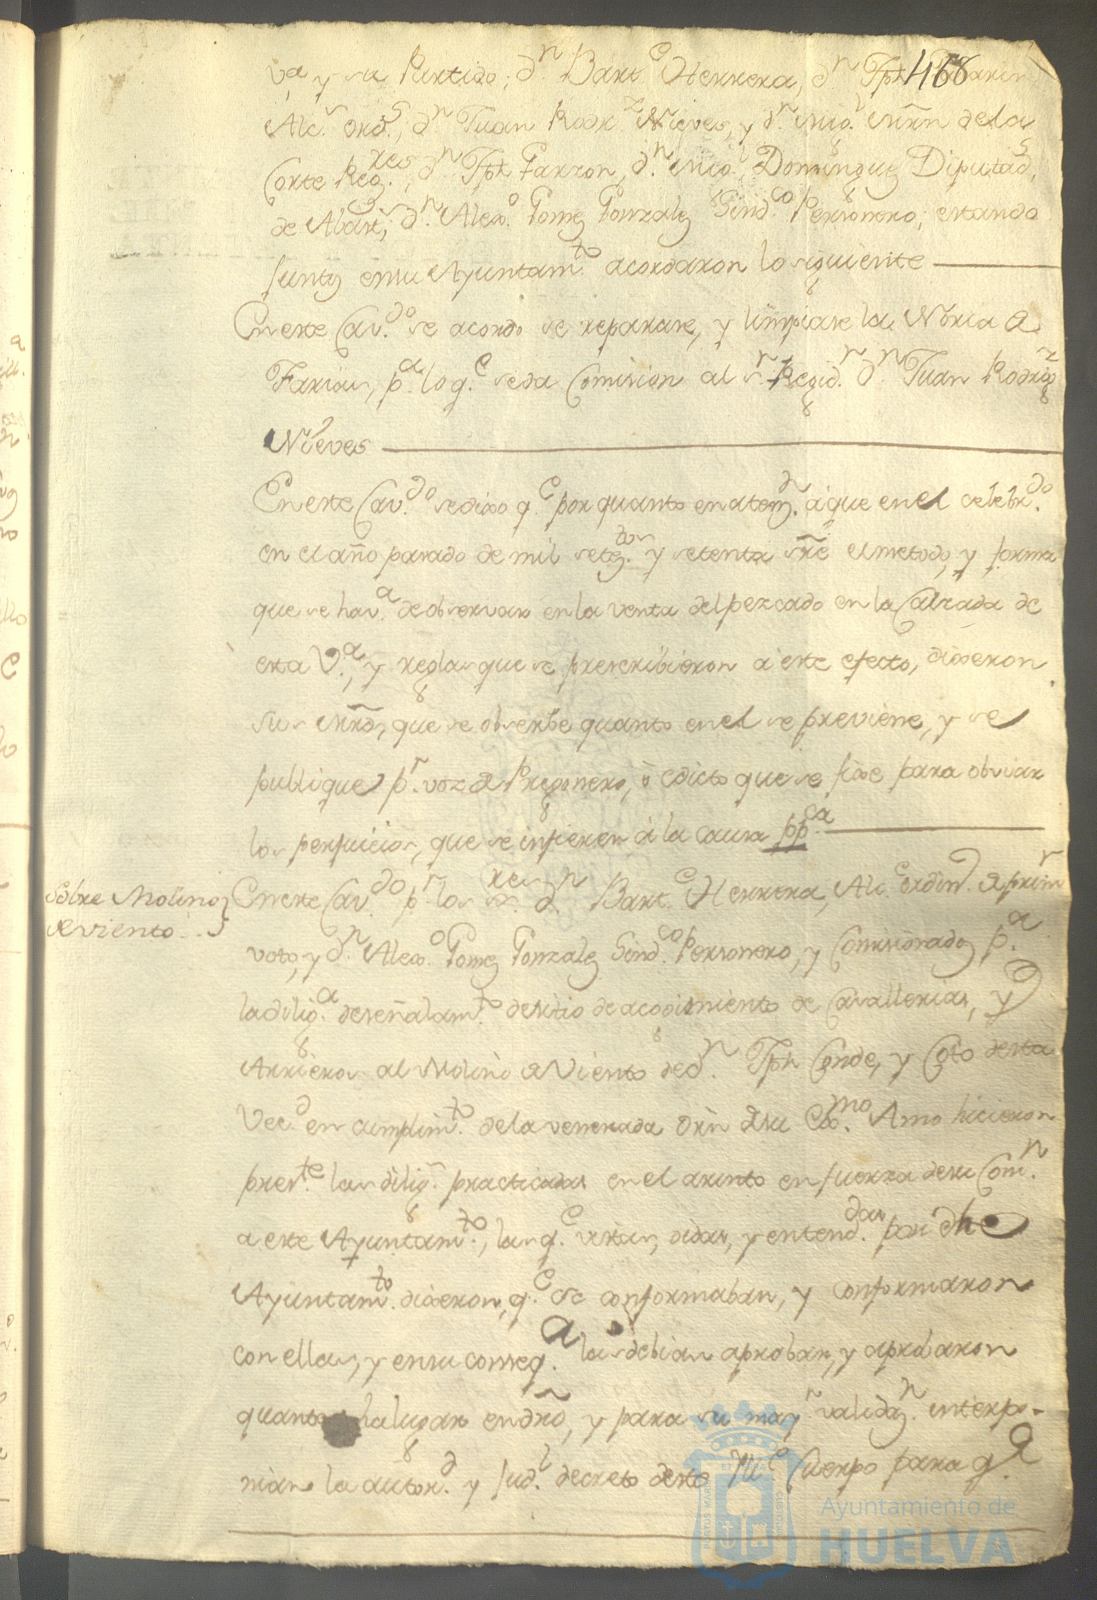 468
V.ª y su Partido; d.n Bart.e Herrera, d.n Jph
Alc.s ord.s, d.n Juan Rodr.z Nieves, y d.n Nico.l Mrn de la
Corte Reg.res, d.n Jph Garzon, d.n Nico.l Dominguez Diputad.s
de Abast.s, d.n Alexo Gomez Gonzalez Sind.co Personero; estando
juntos en su Ayuntam.to acordaron lo siguiente
En este Cav.do se acordo se reparase, y limpiase la Noria a
p.a lo q.e se da Comision al s.r Regid.r d.n Juan Rodrig.z
Nieves
En este Cav.do se dixo q.e por quanto en aten.n a que en el celebr.do
en el año pasado de mil setez.tos y setenta sre el metodo, y forma
que se hav.a de observar en la venta del pezcado en la Calzada de
esta V.a, y reglas que se prescribieron a este efecto, dixeron
sus mrds, que se observe quanto en el se previene, y se
publique p.r voz de Pregonero, o edicto que se fixe para obviar
los perjuicios, que se infieren a la causa pp.ca
Sobre Molino
de viento
En este Cav.do p.r los s.res d.n Bart.e Herrera, Alc.e ordin.o de prim.r
voto, y d.n Alexo Gomez Gonzalez Sind.co Personero, y Comisionados p.a
la dilig.a de señalam.to de sitio de acogimiento de Cavallerias, y
Arrieros al Molino de Viento de d.n Jph Conde, y Coto desta
Vec.d en cumplim.to de la venerada orn de su Ex.mo Amo hicieron
pres.te las dilig.s practicadas en el asunto en fuerza de su Com.n
a este Ayuntam.to, las q.e vistas, oidas, y entend.das por dho
Ayuntam.to dixeron, q.e se conformaban, y conformaron
con ellas, y en su conseq.a las debian aprobar, y aprobaron
quanto ha lugar en dro, y para su may.r validaz.n interpo-
nian la autor.d y jud.l decreto deste Ill.e Cuerpo para q.e
Ayuntamiento de
HUELVA